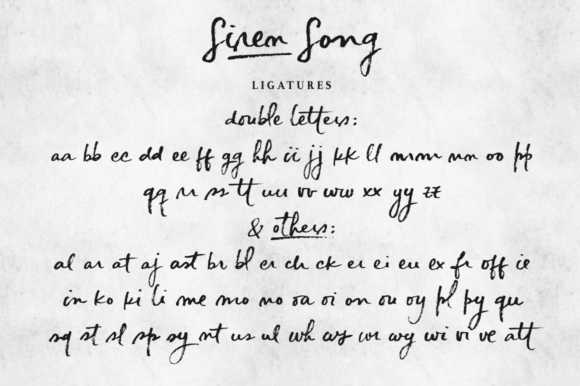 Siren Song
LIGATURES
double letters:
aa bb cc dd ee ff gg hh ii jj kk ll mm nn oo pp
qq rr ss tt uu vv ww xx yy zz
& others:
al ar at aj ast br bl er ch ck er ei eu ex fr off ie
in ko ki li me mo no oa oi on ou oy pl py qu
sq st sl sp sy nt us ul wh wy wr wy wi vi ve att